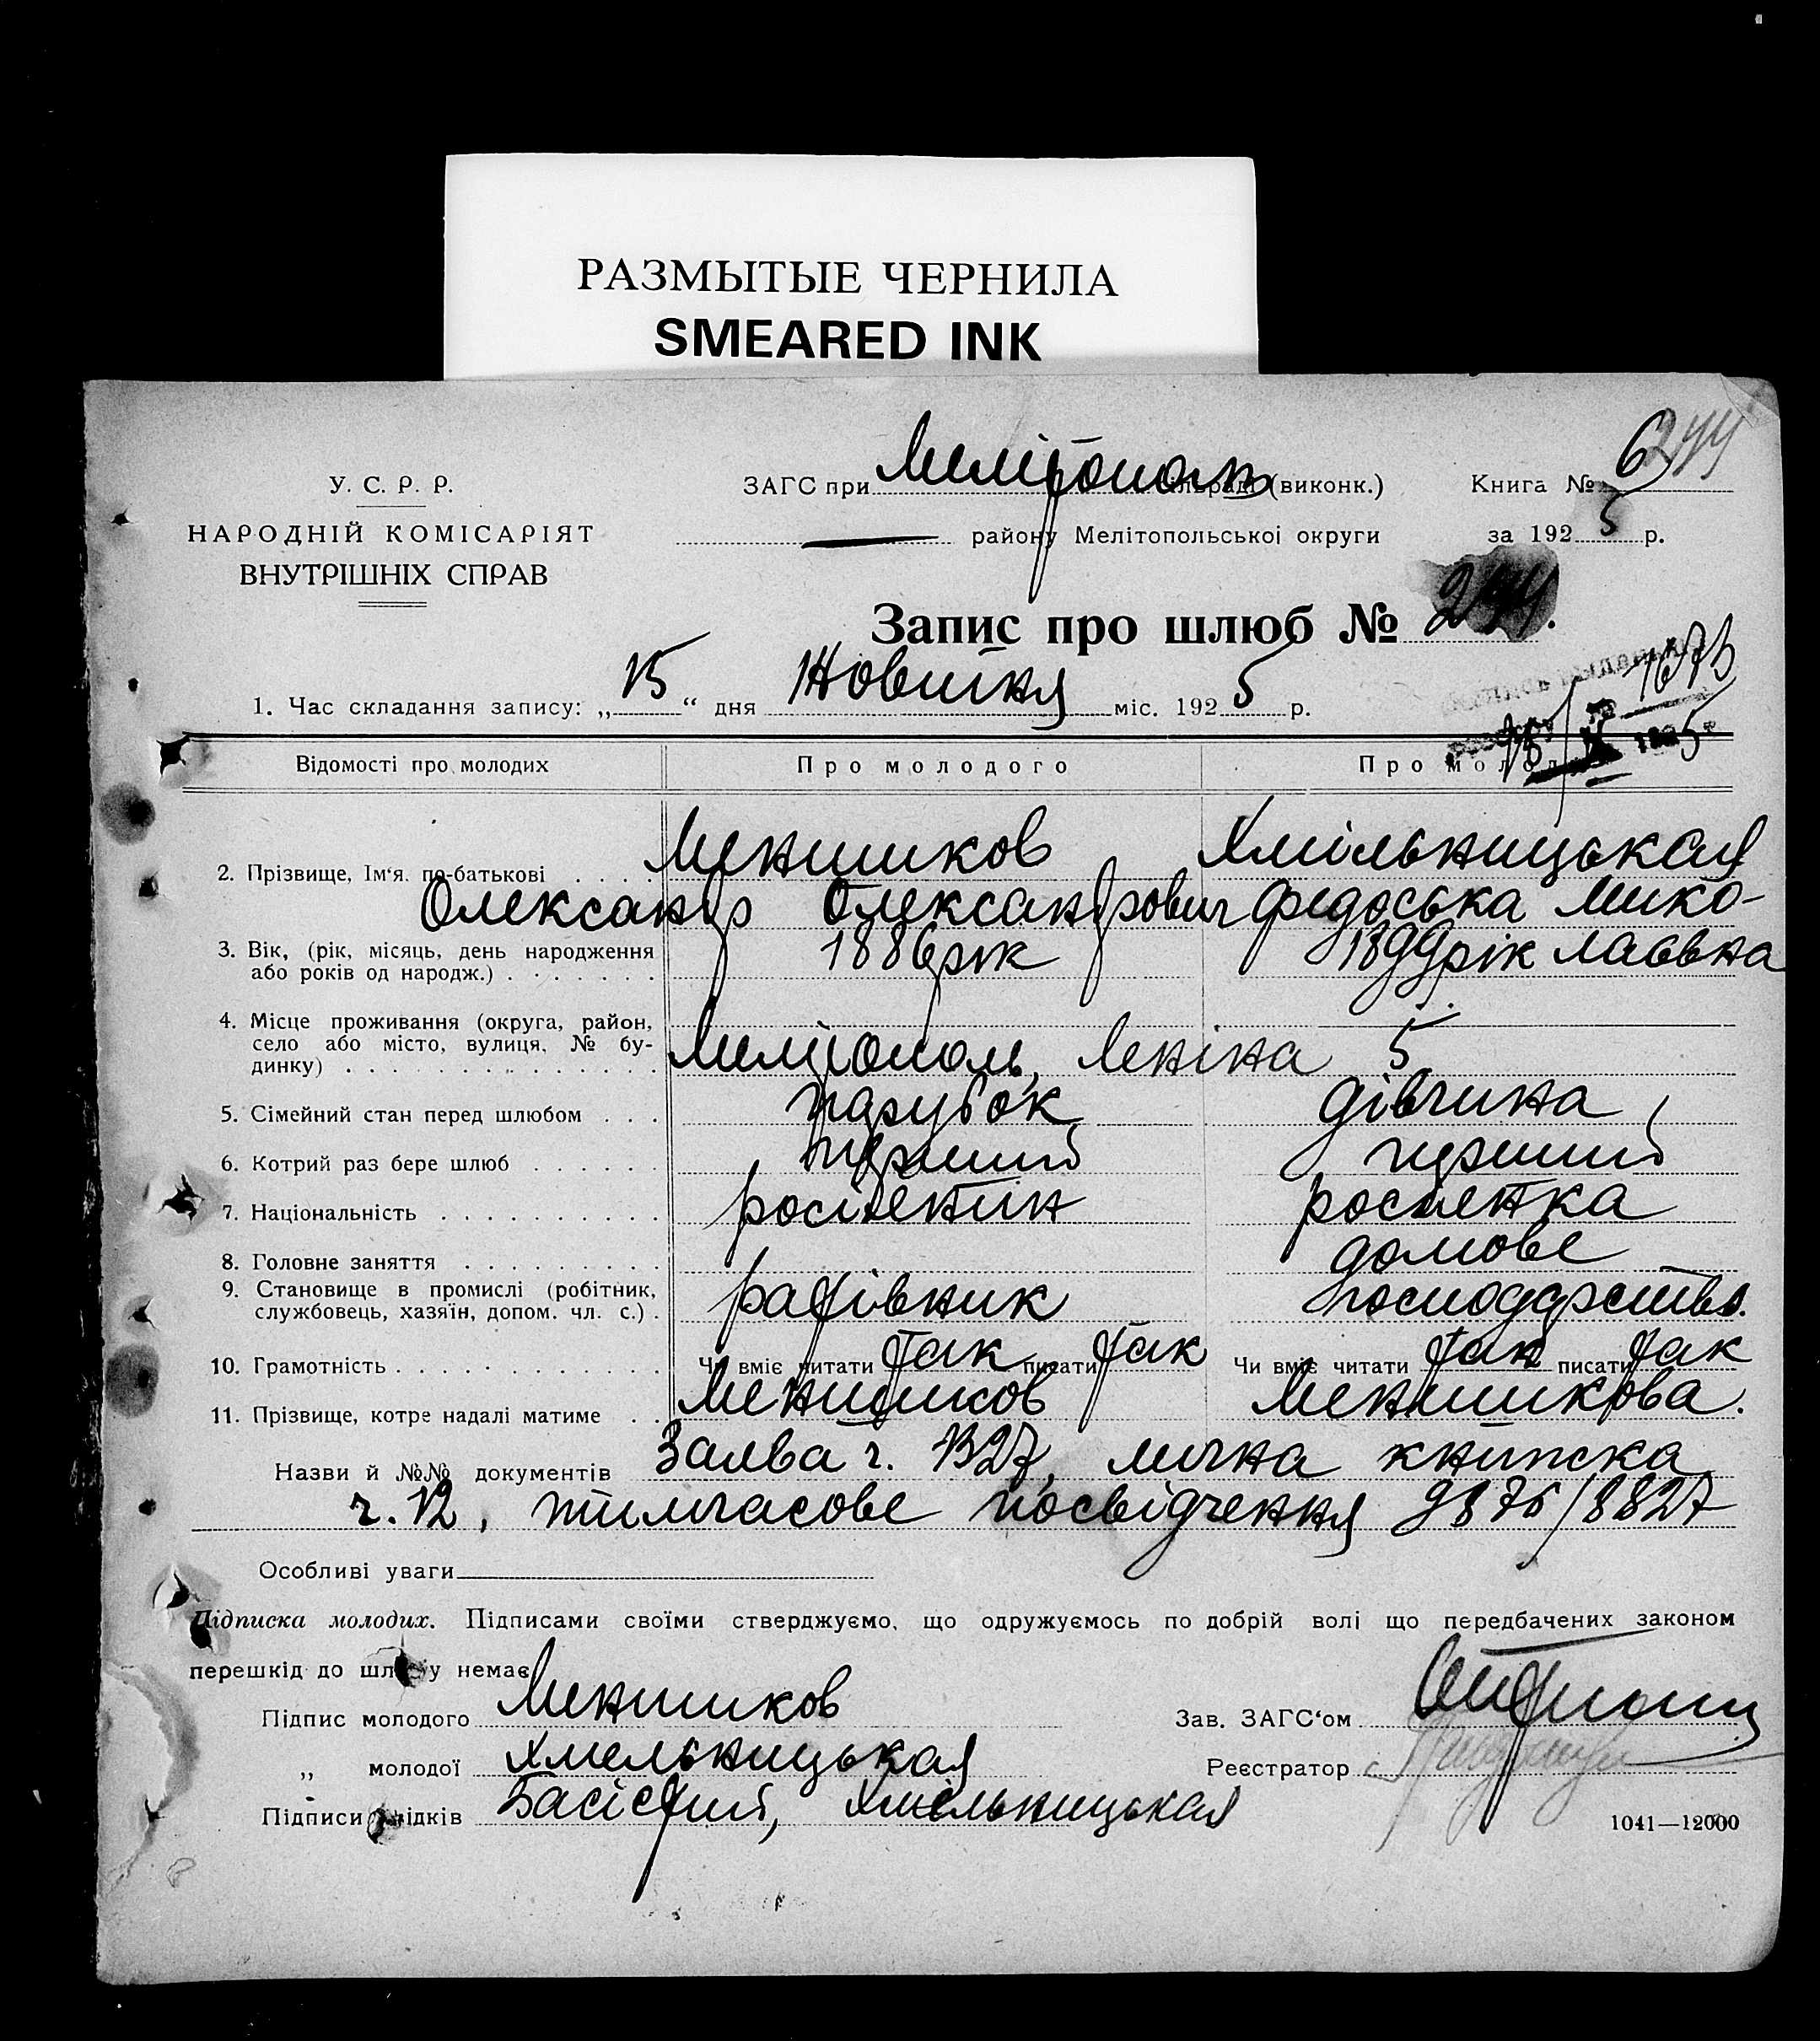 РАЗМЫТЫЕ ЧЕРНИЛА
SMEARED INK
У. С. Р. Р.
НАРОДНІЙ КОМІСАРІЯТ
ВНУТРІШНІХ СПРАВ
ЗАГС при Мелітополь (виконк.)
району Мелітопольської округи
Книга № 6
за 1925 р.
Запис про шлюб № 244.
1. Час складання запису: „15“ дня Жовтня міс. 1925 р.
Відомості про молодих Про молодого Про молод
2. Прізвище, Ім‘я. по-батькові Меншиков Хмільницькая
Олександр Олександрович Федоська Мико-
3. Вік, (рік, місяць, день народження або років од народж.) 1886 рік 1899 рік лаєвна
4. Місце проживання (округа, район,
село або місто, вулиця, № бу-
динку) Мелітополь, Леніна 5
5. Сімейний стан перед шлюбом парубок дівчина
6. Котрий раз бере шлюб перший перший
7. Національність росіянин росіянка
8. Головне заняття домове
9. Становище в промислі (робітник,
службовець, хазяїн, допом. чл. с.) господарство.
10. Грамотність Чи вміє читати так писати так Чи вміє читати так писати так
11. Прізвище, котре надалі матиме Меншиков Меншикова.
Назви й №№ документів Заява ч. 1327, книжка
ч. 12, тимчасове посвідчення 9876/8827
Особливі уваги
Підписка молодих. Підписами своїми стверджуємо, що одружуємось по добрій волі що передбачених законом
перешкід до шлюбу немає
Підпис молодого Меншиков Зав. ЗАГС‘ом
„ молодої Хмельницькая Реєстратор
Підписи свідків Хмельницькая
1041—12000